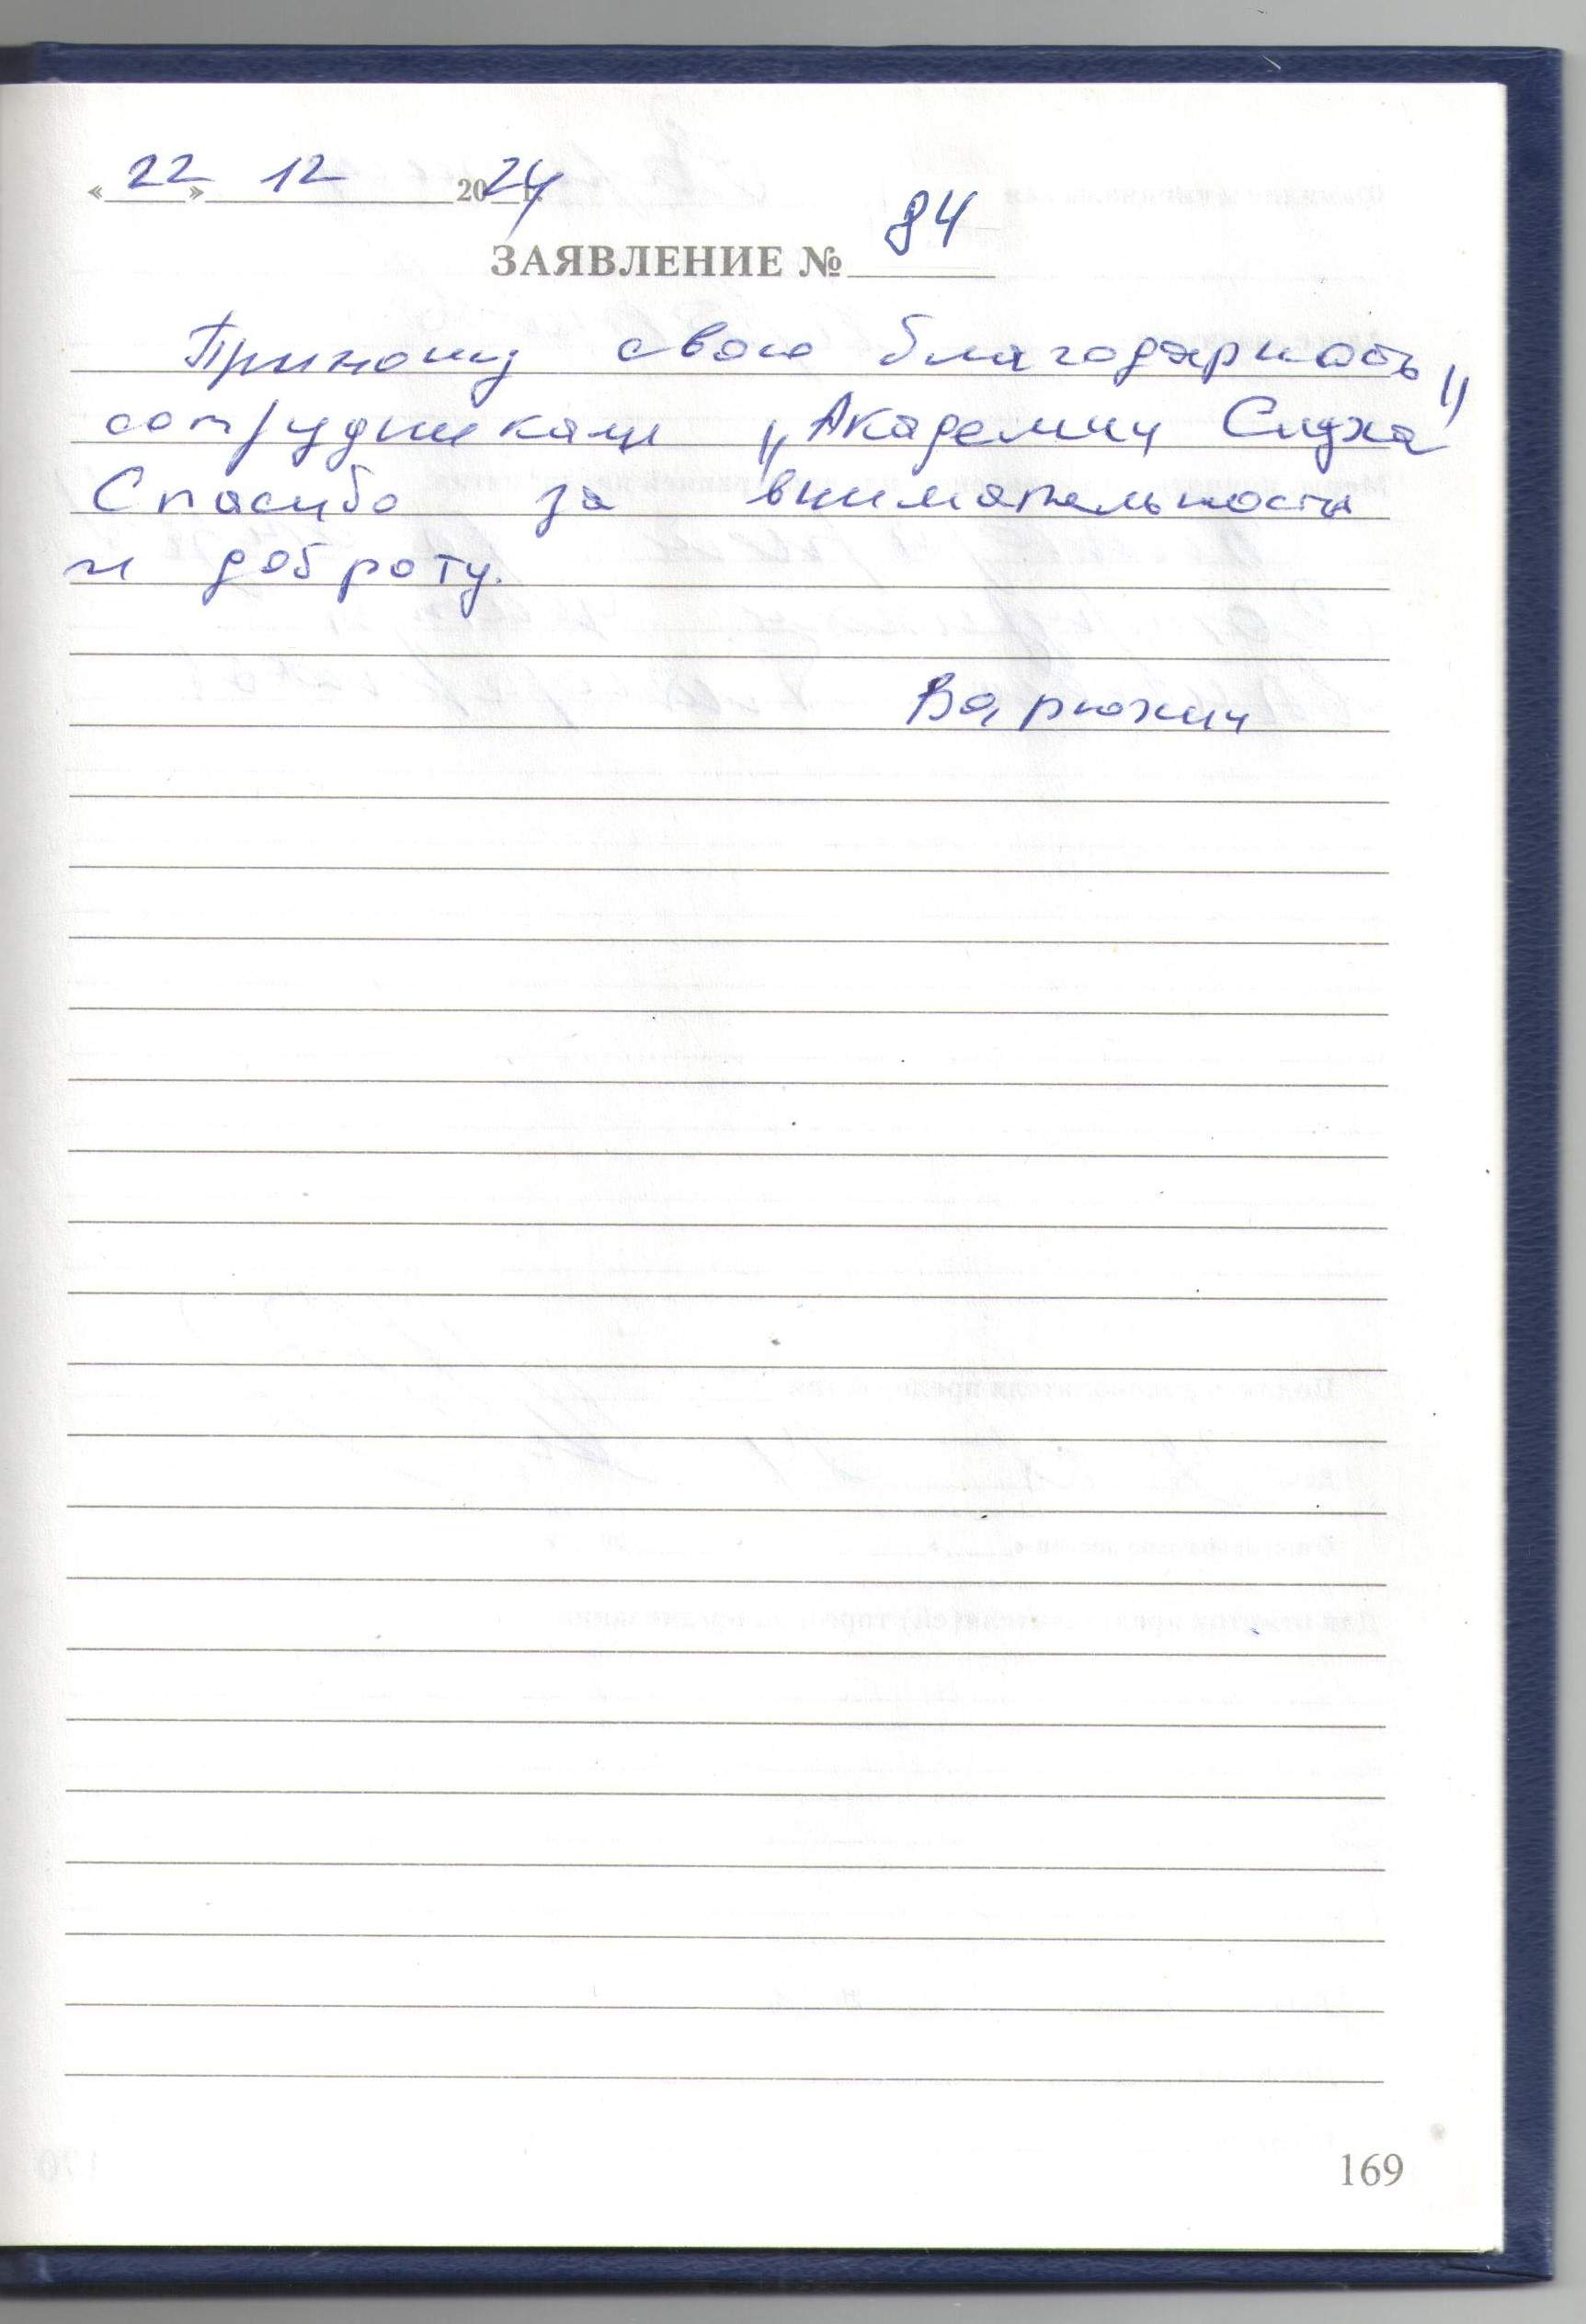 « 22 » 12 2024 г.
ЗАЯВЛЕНИЕ № 84
Приношу свою благодарность
сотрудникам „Академии Слуха"
Спасибо за внимательность
и доброту.
Варюхин
169